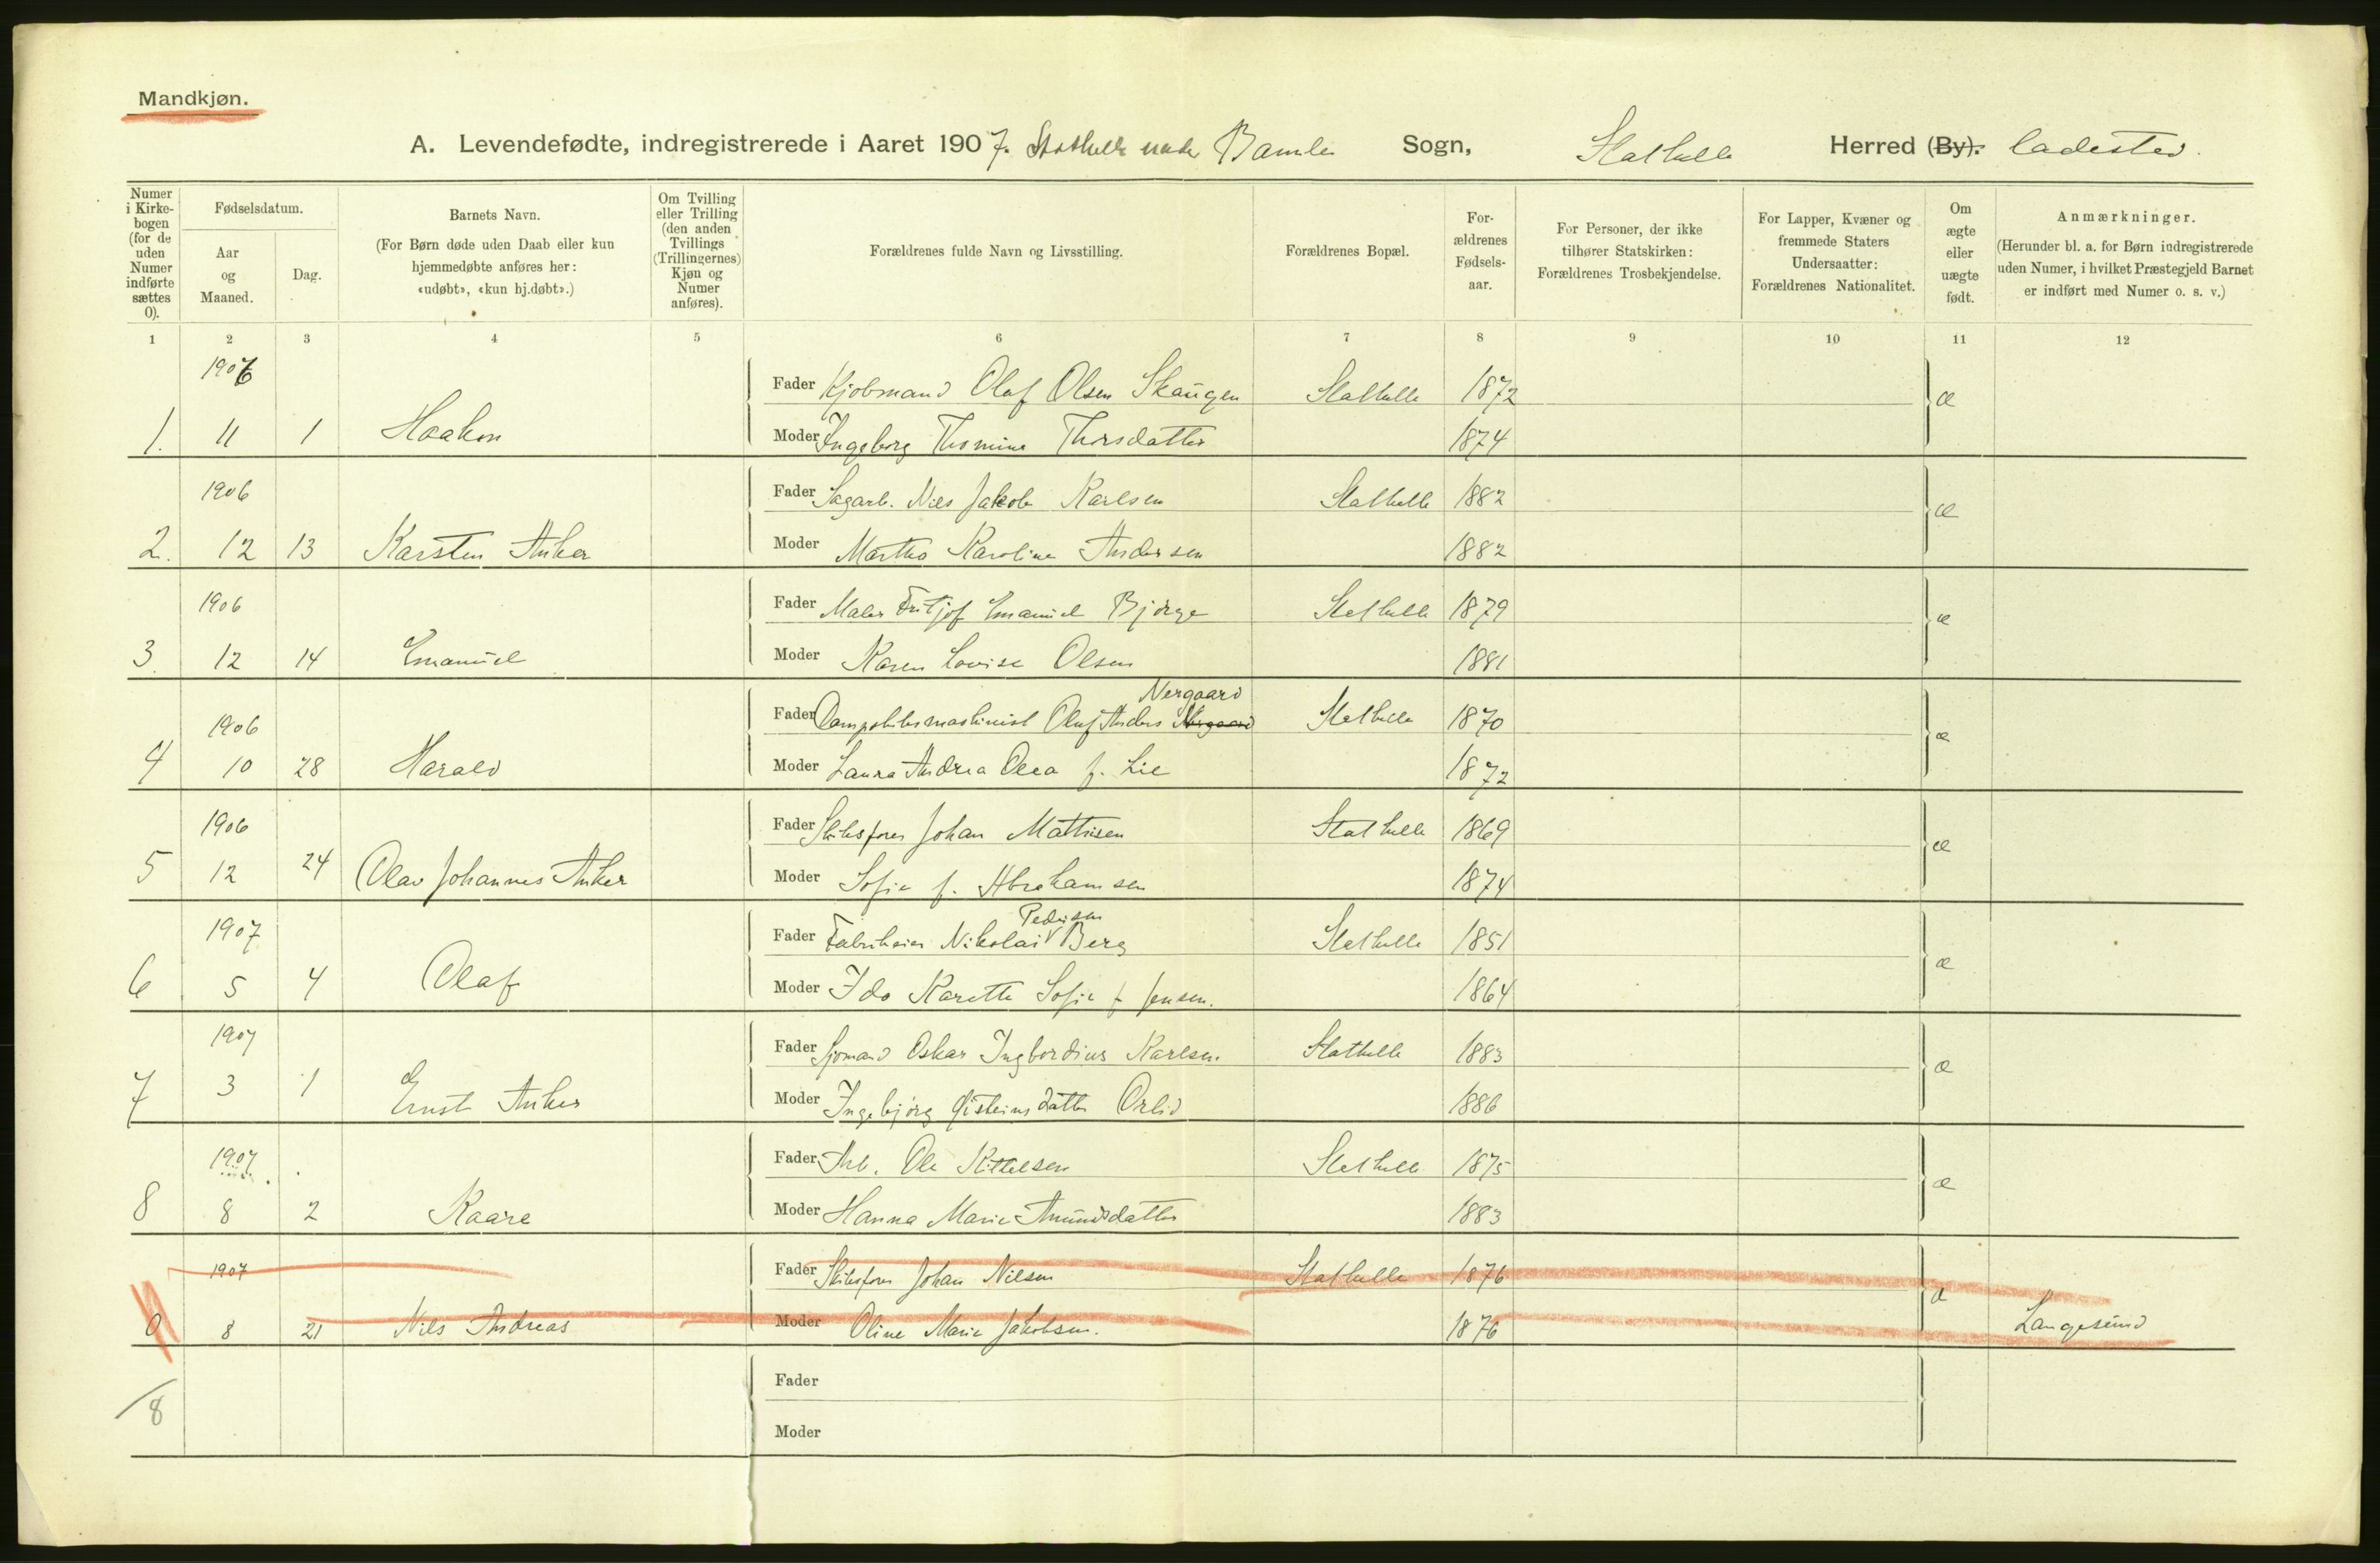 Mandkjøn.
A. Levendefødte, indregistrerede i Aaret 1907. Stathelle under Bamle Sogn, Stathelle Herred (By). ladested.
Numer i Kirke-bogen (for de uden Numer indførte sættes 0).
Fødselsdatum.
Aar og Maaned.
Dag.
Barnets Navn.
(For Børn døde uden Daab eller kun hjemmedøbte anføres her: «udøbt», «kun hj.døbt».)
Om Tvilling eller Trilling (den anden Tvillings (Trillingernes) Kjøn og Numer anføres).
Forældrenes fulde Navn og Livsstilling.
Forældrenes Bopæl.
For-ældrenes Fødsels-aar.
For Personer, der ikke tilhører Statskirken: Forældrenes Trosbekjendelse.
For Lapper, Kvæner og fremmede Staters Undersaatter: Forældrenes Nationalitet.
Om ægte eller uægte født.
Anmærkninger.
(Herunder bl. a. for Børn indregistrerede uden Numer, i hvilket Præstegjeld Barnet er indført med Numer o. s. v.)
1 2 3 4 5 6 7 8 9 10 11 12
1906 Fader Kjøbmand Olaf Olsen Skaugen Stathelle 1872 æ
1. 11 1 Haakon Moder Ingeborg Thomine Thorsdatter 1874
1906 Fader Sagarb. Nils Jakob Karlsen Stathelle 1882 æ
2. 12 13 Karsten Anker Moder Martha Karoline Andersen 1882
1906 Fader Maler Fritjof Emanuel Bjørge Stathelle 1879 æ
3 12 14 Emanuel Moder Karen Lovise Olsen 1881
Nergaard
1906 Fader Dampskibsmaskinist Oluf Anders Nergaard Stathelle 1870 æ
4 10 28 Harald Moder Laura Andrea Olea f. Lie 1872
1906 Fader Skibsfører Johan Mathisen Stathelle 1869 æ
5 12 24 Olav Johannes Anker Moder Sofie f. Abrahamsen 1874
Pedersen
1907 Fader Fabrikeier Nikolai Berg Stathelle 1851 æ
6 5 4 Olaf Moder Ida Karette Sofie f Jensen. 1864
1907 Fader Sjømand Oskar Ingbordius Karlsen Stathelle 1883 æ
7 3 1 Ernst Anker Moder Ingebjørg Østeinsdatter Orlid 1886
1907 Fader Arb. Ole Kittelsen Stathelle 1875 æ
8 8 2 Kaare Moder Hanna Marie Amundsdatter 1883
1907 Fader Skibsfører Johan Nilsen Stathelle 1876 æ
0 8 21 Nils Andreas Moder Oline Marie Jakobsen. 1876 Langesund
Fader
/8
Moder